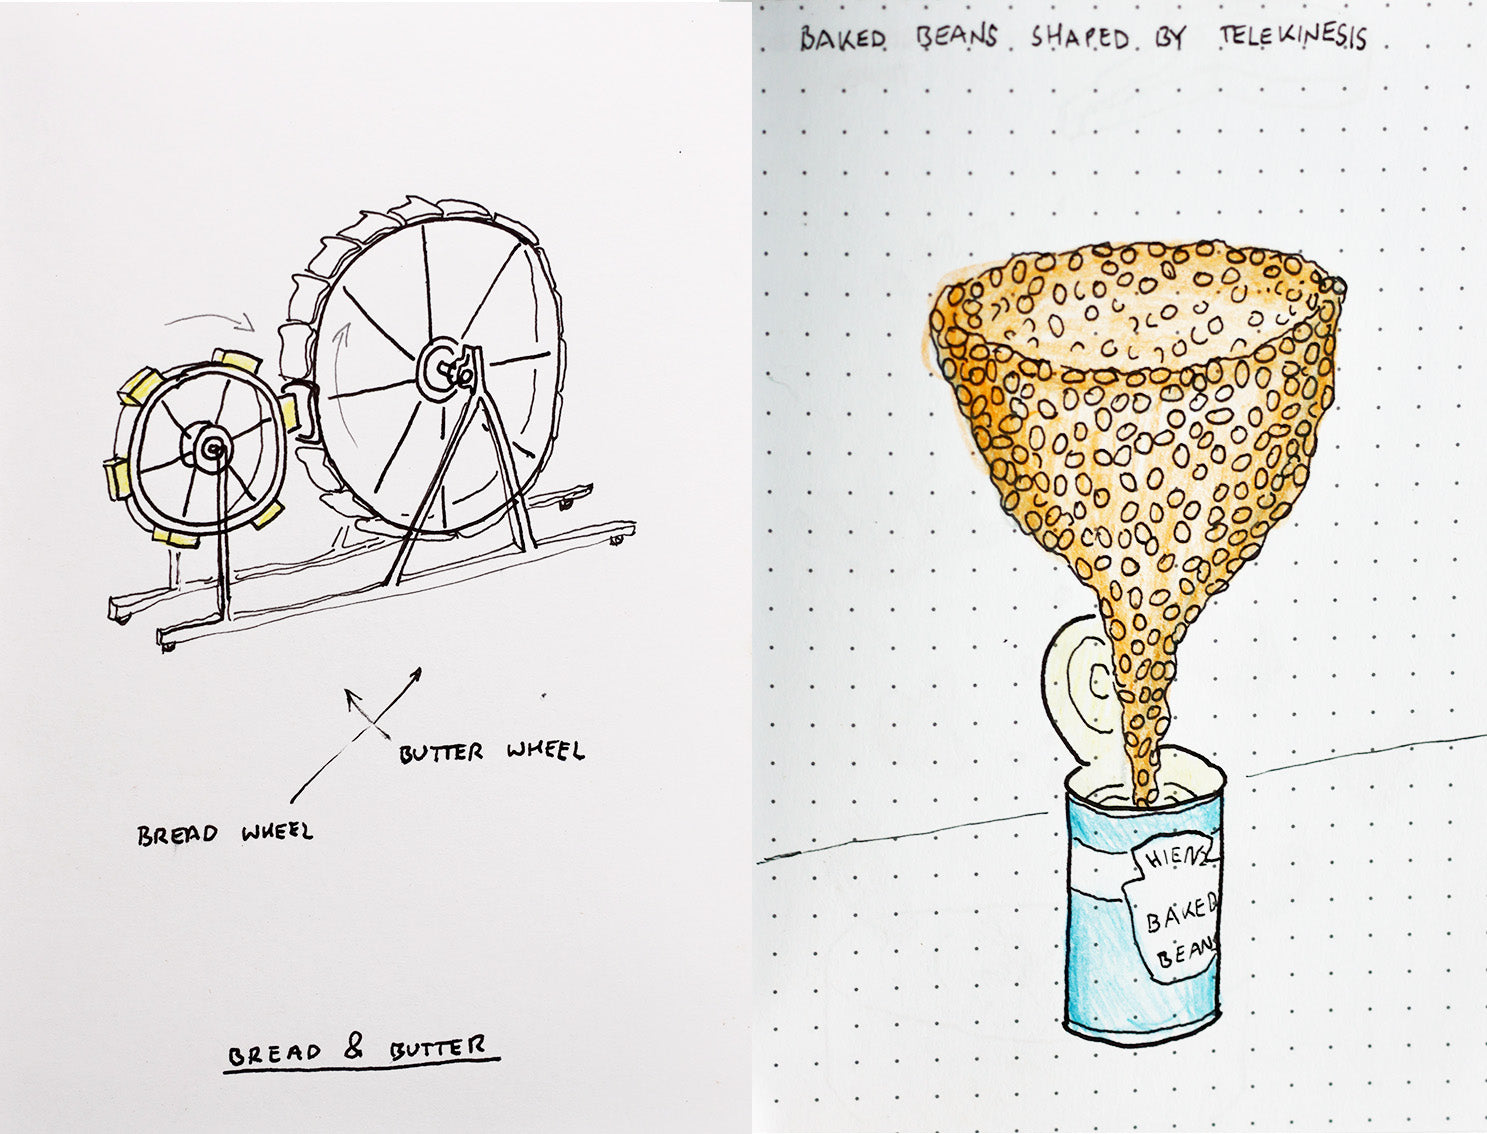 BUTTER WHEEL
BREAD WHEEL
BREAD & BUTTER
BAKED BEANS SHAPED BY TELEKINESIS
HIENZ
BAKED
BEANS